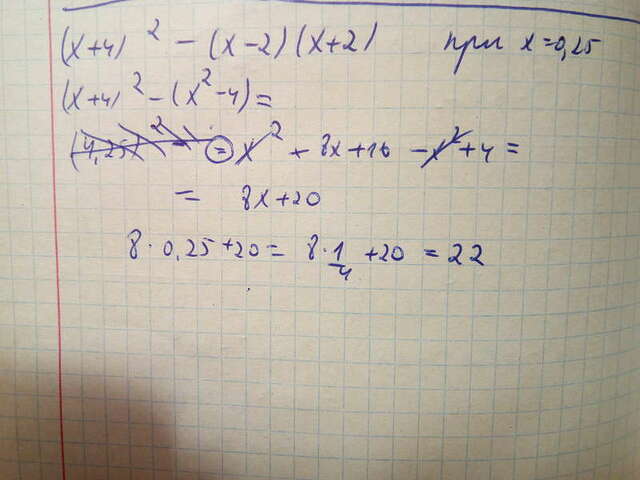 (x+4)² - (x-2)(x+2) при x=0,25
(x+4)² - (x²-4) =
(4,25)² - = x² + 8x+16 - x² + 4 =
= 8x+20
8·0,25+20 = 8·1/4 +20 = 22